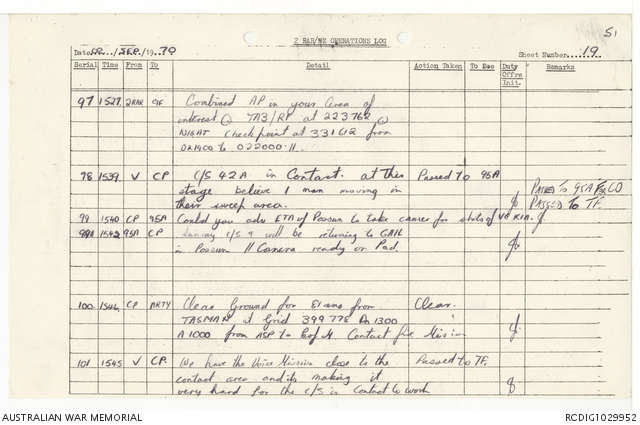 51
2 RAR/NZ OPERATIONS LOG
Date 02 / SEP / 1970 Sheet Number 19
Serial Time From To Detail Action Taken To Dec Duty Offrs Init. Remarks
97 1527 2RAR Combined AP in your area of
interest @ TA3/RP at 223762 @
NIGHT check point at 331612 from
021900 to 022000 H.
98 1539 V CP C/S 42A in Contact. at this Passed to 95A
stage believe 1 man moving in
their sweep area. PASSED TO TF.
99 1540 CP 95A Could you adv ETA of Possum to take camera for shots of VC KIA.
99A 1542 95A CP C/S 9 will be returning to GAIL
in Possum Camera ready on Pad.
100 1544 CP ARTY Clear Ground for 81mms from Clear.
TASMAN at Grid 399 778 Rn 1300
A 1000 from ASP to Contact fire Mission
101 1545 V CP We have the Voice Mission close to the Passed to TF.
contact area and its making it
very hard for the C/S in Contact to work
AUSTRALIAN WAR MEMORIAL RCDIG1029952